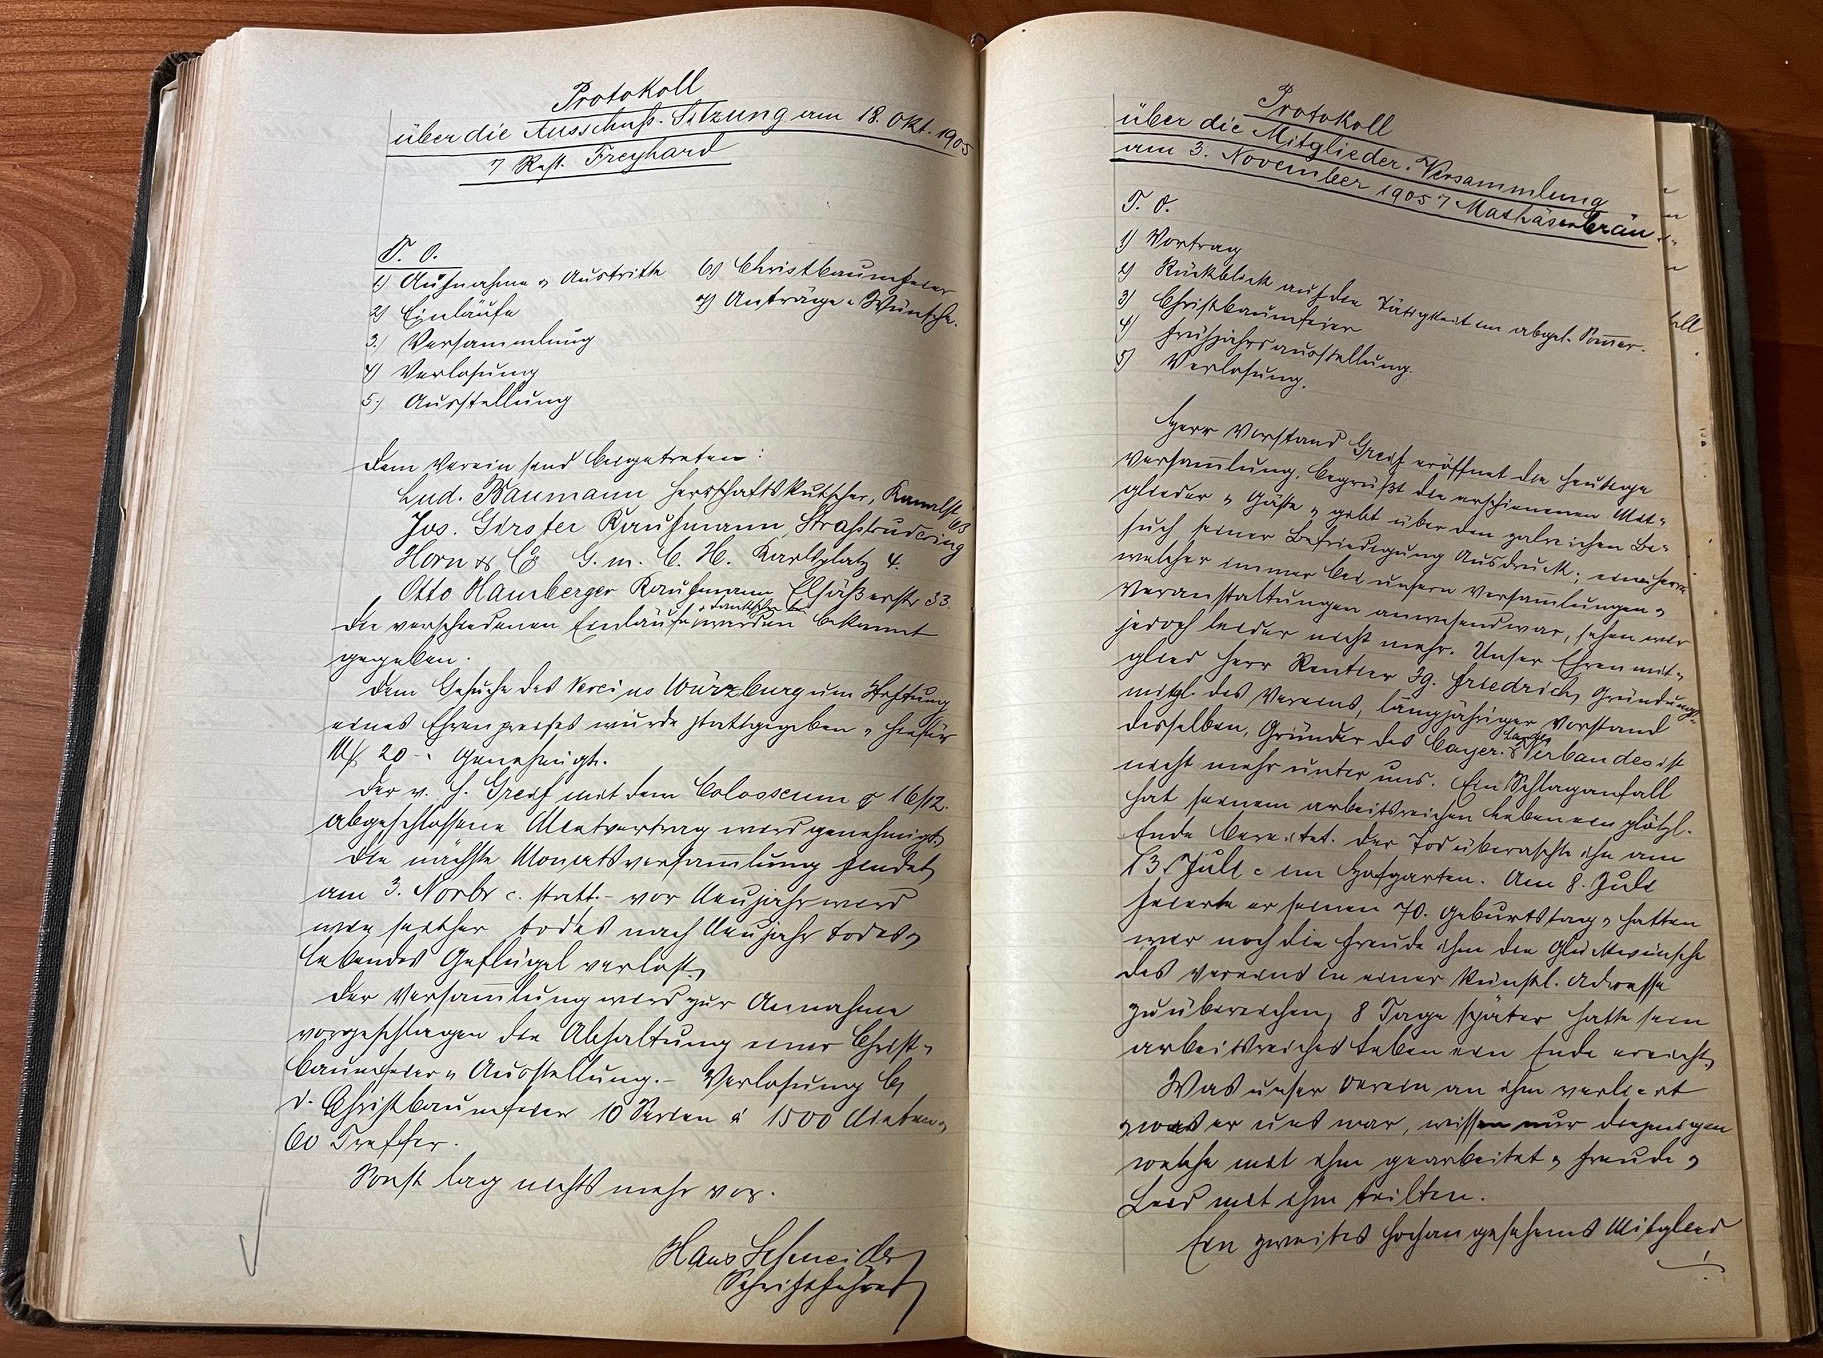 Protokoll
über die Ausschuß-Sitzung am 18. Okt. 1905
Rest. Freyhard
T. O.
1) Aufnahme u Austritte
2) Einläufe
3.) Versammlung
4) Verlosung
5.) Ausstellung
6) Christbaumfeier
7) Anträge u Wünsche.
Dem Verein sind beigetreten:
Lud. Baumann Herrschaftskutscher, Kanalst
Jos. Girster Kaufmann, Straßtrudering
Horn & Co G. m. b. H. Karlsplatz 4.
Otto Hamberger Kaufmann Elsäßerstr 33.
Die verschiedenen Einläufe werden bekannt
gegeben.
Dem Gesuche des Vereins Würzburg um Stiftung
eines Ehrenpreises wurde stattgegeben u hiefür
M 20 -. genehmigt.
Der v. H. Greif mit dem Colosseum 16/12.
abgeschlossene Mietvertrag wird genehmigt.
Die nächste Monatsversam̄lung findet
am 3. Novbr c. statt. - vor Neujahr wird
wie seither todes nach Neujahr todes u
lebendes Geflügel verlost.
Der Versam̄lung wird zur Annahme
vorgeschlagen die Abhaltung einer Christ-
baumfeier u Ausstellung. - Verlosung b/
d. Christbaumfeier 10 Serien á 1500 Nieten u
60 Treffer.
Sonst lag nichts mehr vor.
Hans Schneider
Schriftführer
Protokoll
über die Mitglieder-Versammlung
am 3. November 1905 Mathäserbräu
T. O.
1) Vortrag
2) Rückblick auf die Tätigkeit im abgel. Som̄er.
3) Christbaumfeier
4) Frühjahrsausstellung.
5) Verlosung.
Herr Vorstand Greif eröffnet die heutige
Versam̄lung, begrüßt die erschienenen Mit-
glieder u Gäste u gibt über den zalreichen Be-
such seiner Befriedigung Ausdruck; einen Herrn
welcher immer bei unsern Versam̄lungen u
Veranstaltungen anwesend war, sehen wir
jedoch leider nicht mehr. Unser Ehrenmit-
glied Herr Rentier Jg. Friedrich, Gründungs-
mitgl. des Vereins, langjähriger Vorstand
desselben, Gründer des bayer. Landes Verbandes ist
nicht mehr unter uns. Ein Schlaganfall
hat seinem arbeitsreichen Leben ein plötzl.
Ende bereitet. Der Tod überraschte ihn am
13. Juli c im Hofgarten. Am 8. Juli
feierte er seinen 70. Geburtstag u hatten
wir noch die Freude ihm die Glückwünsche
des Vereins in einer künstl. Adresse
zu überreichen, 8 Tage später hatte sein
arbeitsreiches Leben ein Ende erreicht.
Was unser Verein an ihm verliert
u was er uns war, wissen nur diejenigen
welche mit ihm gearbeitet u Freude u
Leid mit ihm teilten.
Ein zweites hochangesehenes Mitglied